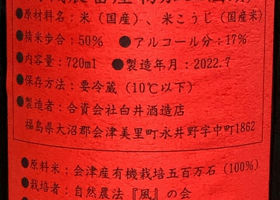 ●原材料名：米（国産）、米こうじ（国産米）
●精米歩合：50% ●アルコール分：17%
●内容量：720ml ●製造年月：2022.7
●保存方法：要冷蔵（10℃以下）
●製造者：合資会社白井酒造店
福島県大沼郡会津美里町永井野字中町1862
●原料米：会津産有機栽培五百万石（100%）
●栽培者：自然農法『風』の会